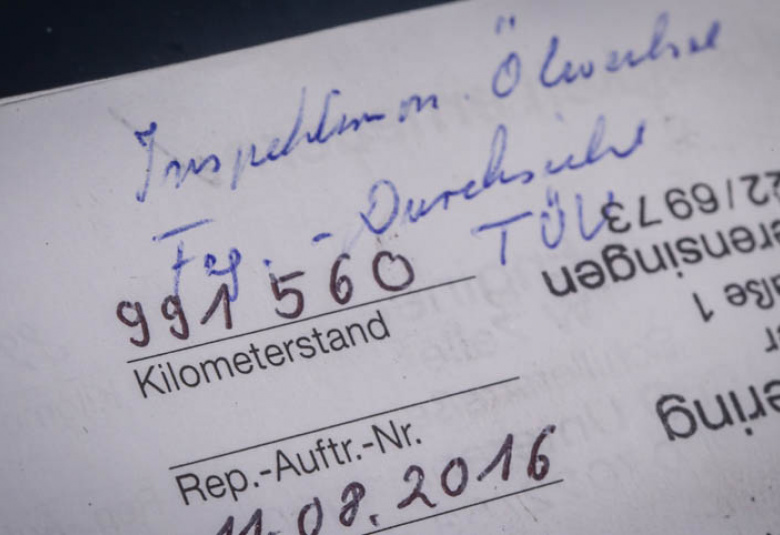 Inspektion Ölwechsel
Fzg. - Durchsicht TÜV
991560
Kilometerstand
Rep.-Auftr.-Nr.
11.08.2016
22/6973
erensingen
aße 1
ering